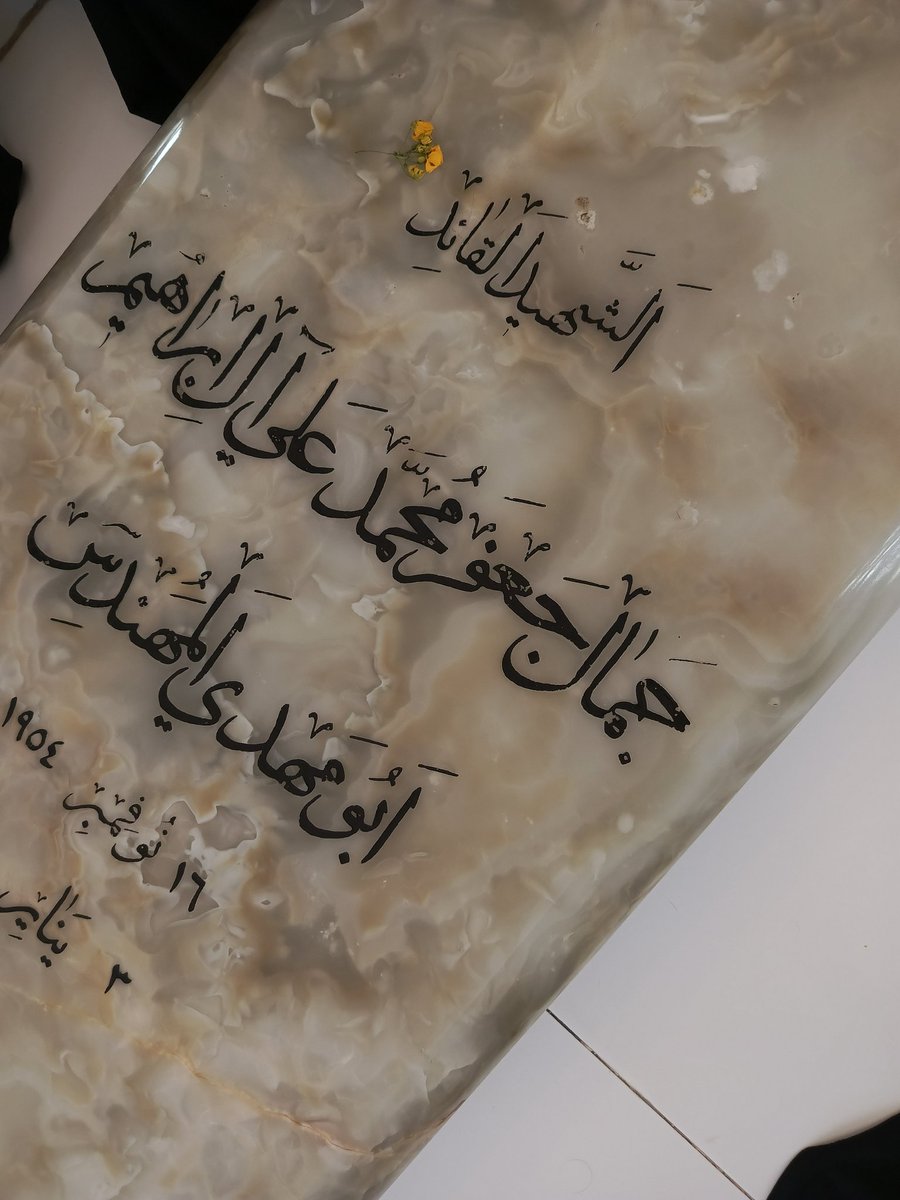 الشَّهيد القائد
جمال جَعفر مُحمَّد علي آل إبراهيم
أبُو مَهدي المُهَندس
١٦ نُوفِمبِر ١٩٥٤
٣ يَنايِر